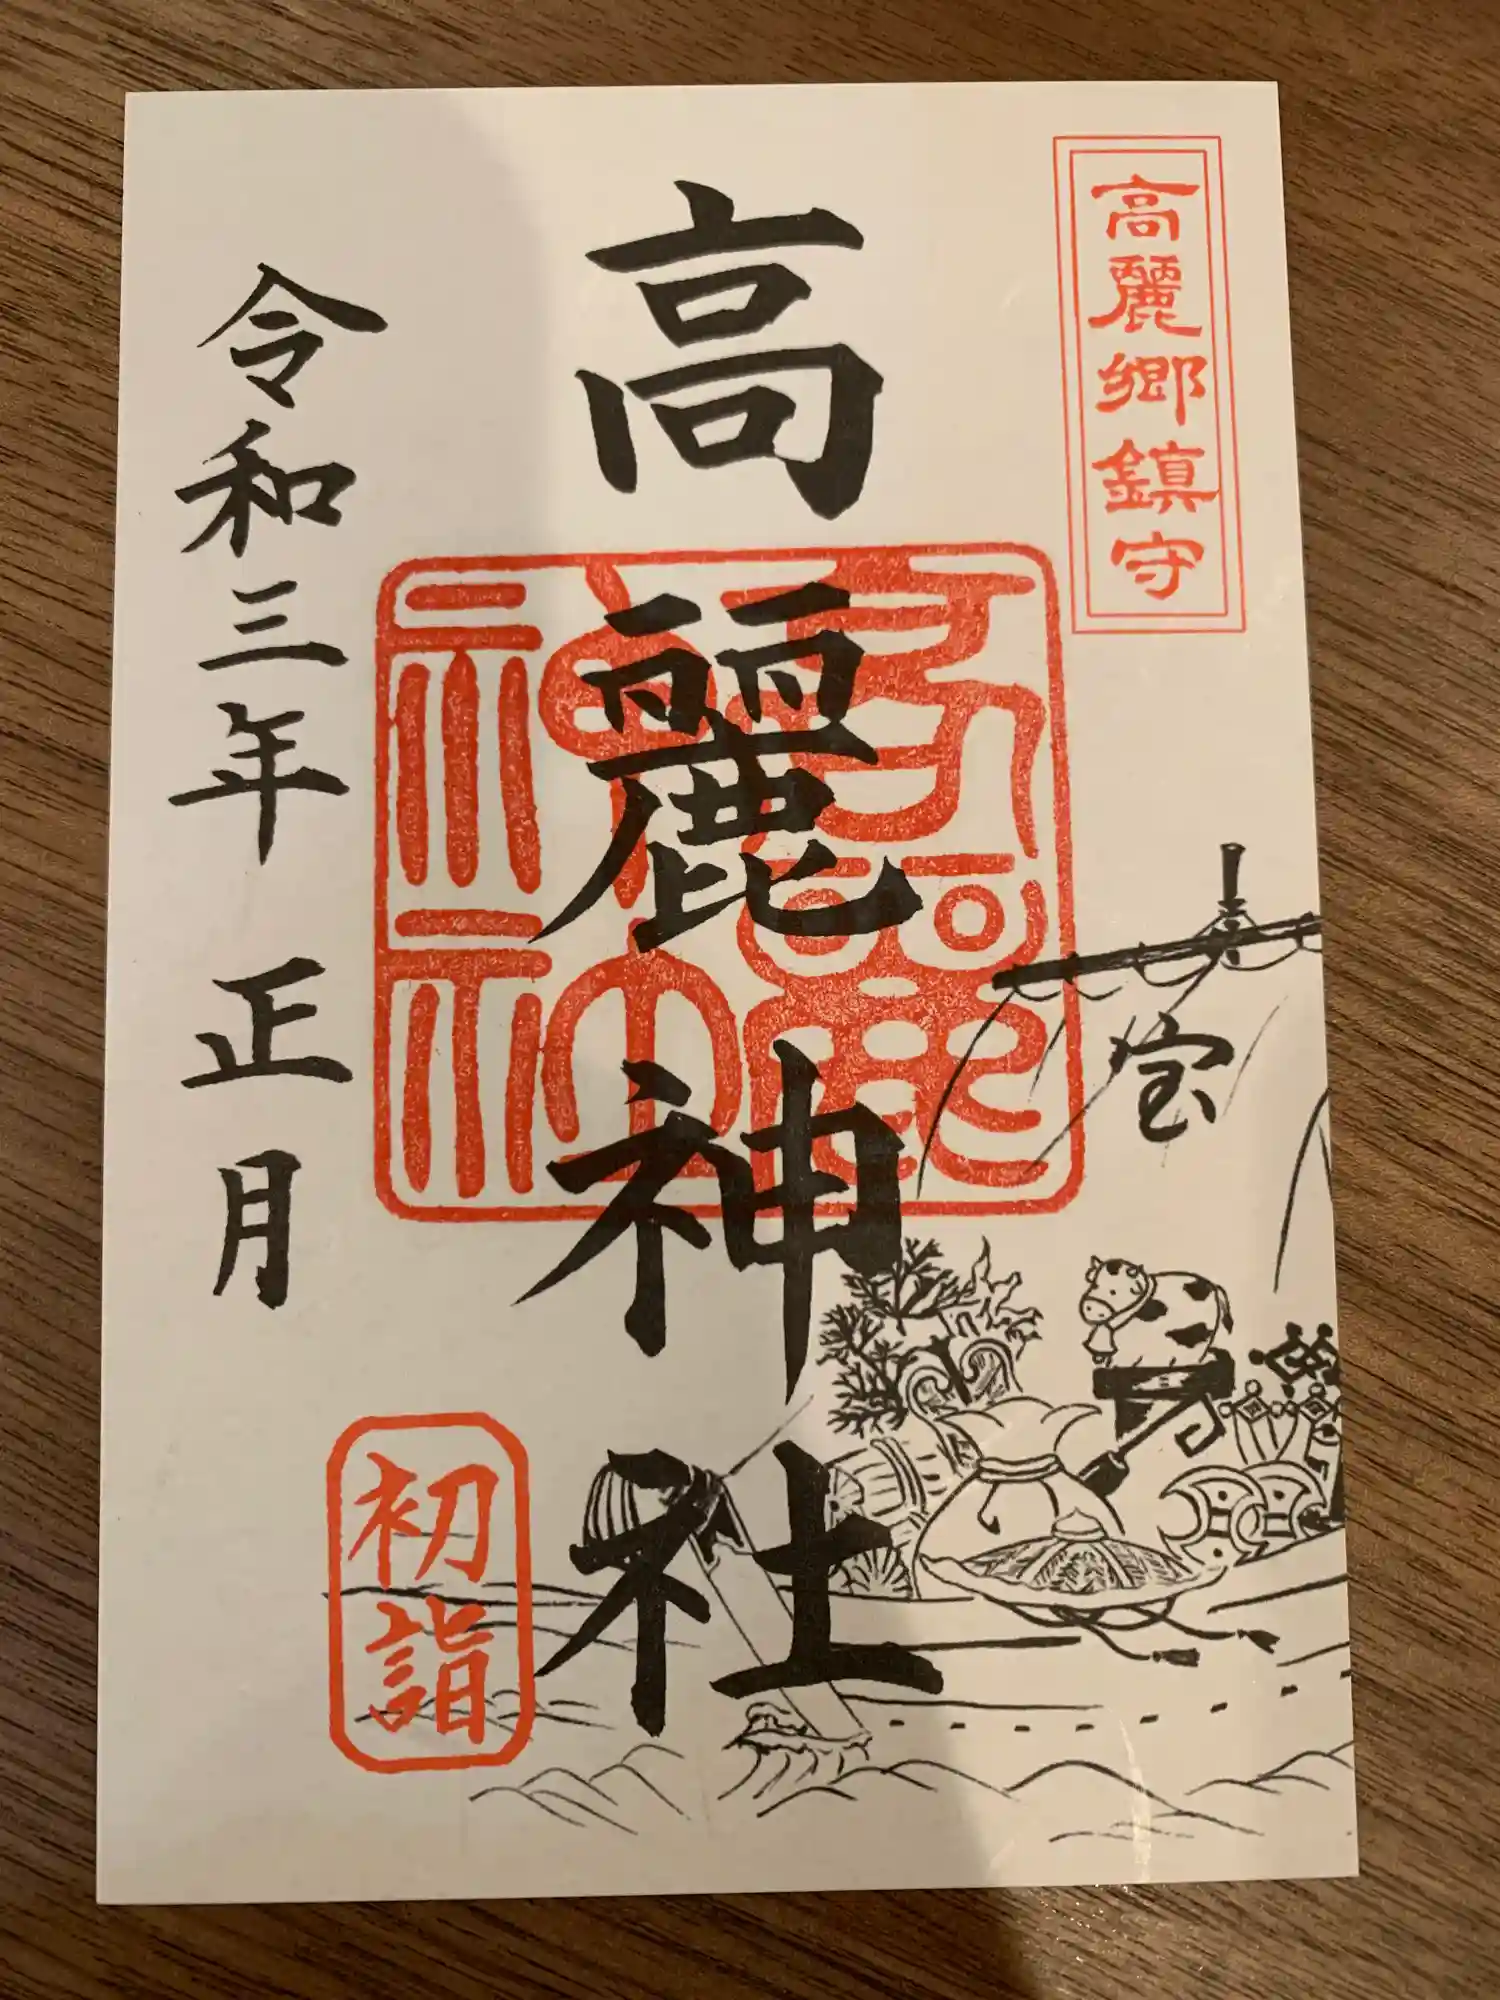 高麗郷鎮守
高麗神社
令和三年 正月
初詣
宝
高麗神社